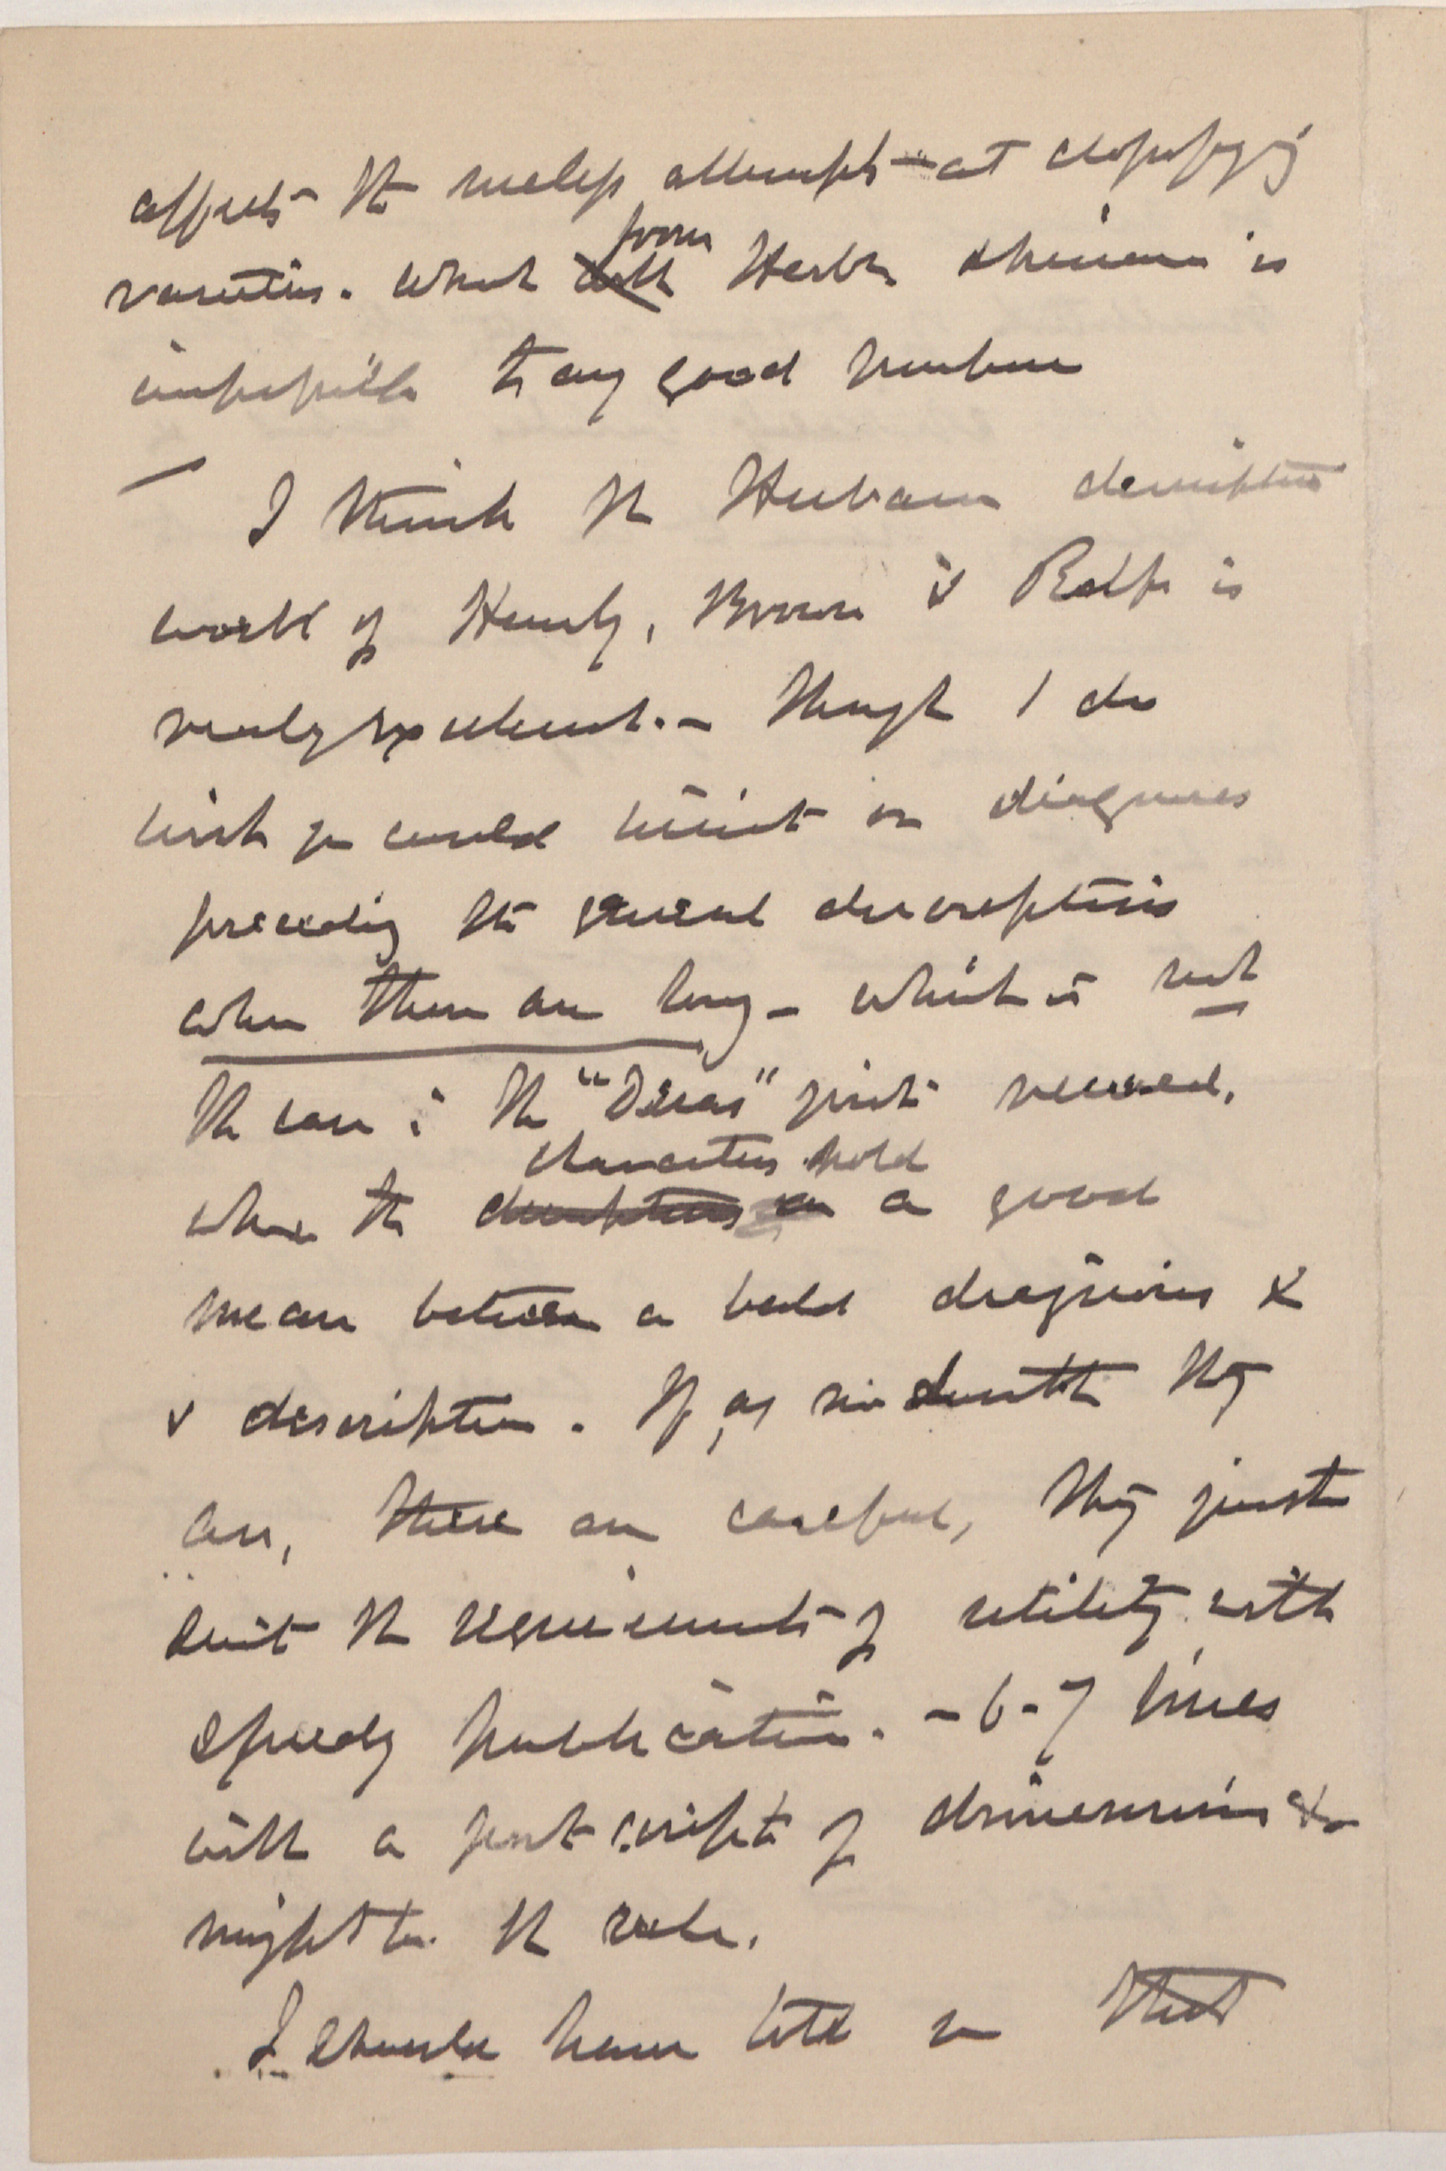 affects the useless attempts at classifying
varieties. which from Herb^m specimens is
impossible to any good purpose
— I think the Herbarium descriptive
work of Hemsley, Brown & Rolfe is
really excellent. — though I do
wish you could insist on diagnoses
preceding the general descriptions
when these are long — which is not
the case in the "Decas" just received,
where the characters hold a good
mean between a bald diagnosis &
& description. If, as no doubt they
are, these are careful, they just
suit the requirements of utility with
speedy publication. — 6-7 lines
with a post script of dimensions &c
might be the rule.
I should have told you that